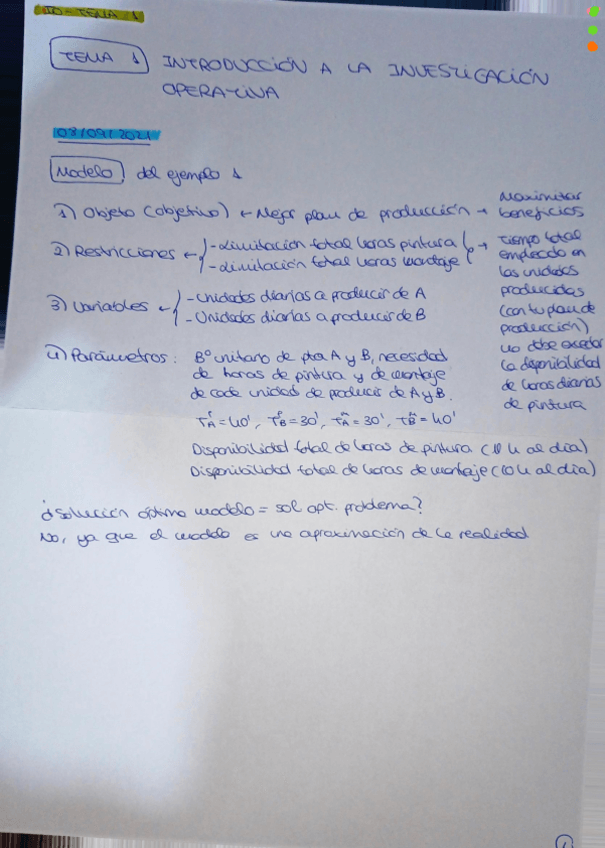 IO - TEMA 1
TEMA 1 INTRODUCCIÓN A LA INVESTIGACIÓN
OPERATIVA
08/09/2021
Modelo del ejemplo 1
1) Objeto (objetivo) ← Mejor plan de producción → Maximizar
beneficios
2) Restricciones ← - Limitación total horas pintura
- Limitación total horas montaje
→ Tiempo total
empleado en
las unidades
producidas
(con tu plan de
producción)
no debe exceder
la disponibilidad
de horas diarias
de pintura
3) Variables ← - Unidades diarias a producir de A
- Unidades diarias a producir de B
4) Parámetros: Bº unitario de pta A y B, necesidad
de horas de pintura y de montaje
de cada unidad de producir de A y B.
T_A^P = 40', T_B^P = 30', T_A^M = 30', T_B^M = 40'
Disponibilidad total de horas de pintura (10 h al día)
Disponibilidad total de horas de montaje (10 h al día)
¿Solución óptima modelo = sol opt. problema?
No, ya que el modelo es una aproximación de la realidad
1